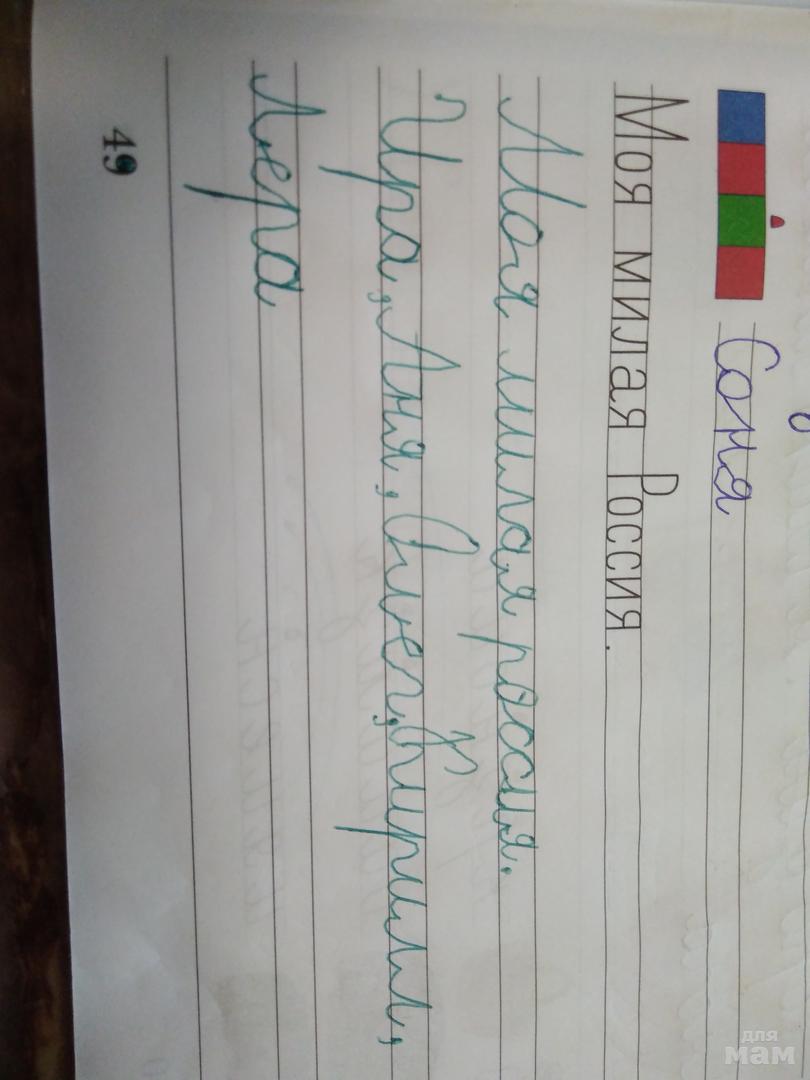 Соня
Моя милая Россия.
Моя милая россия.
Ира, Аня, Олег, Кирилл,
Лера
49
для
мам